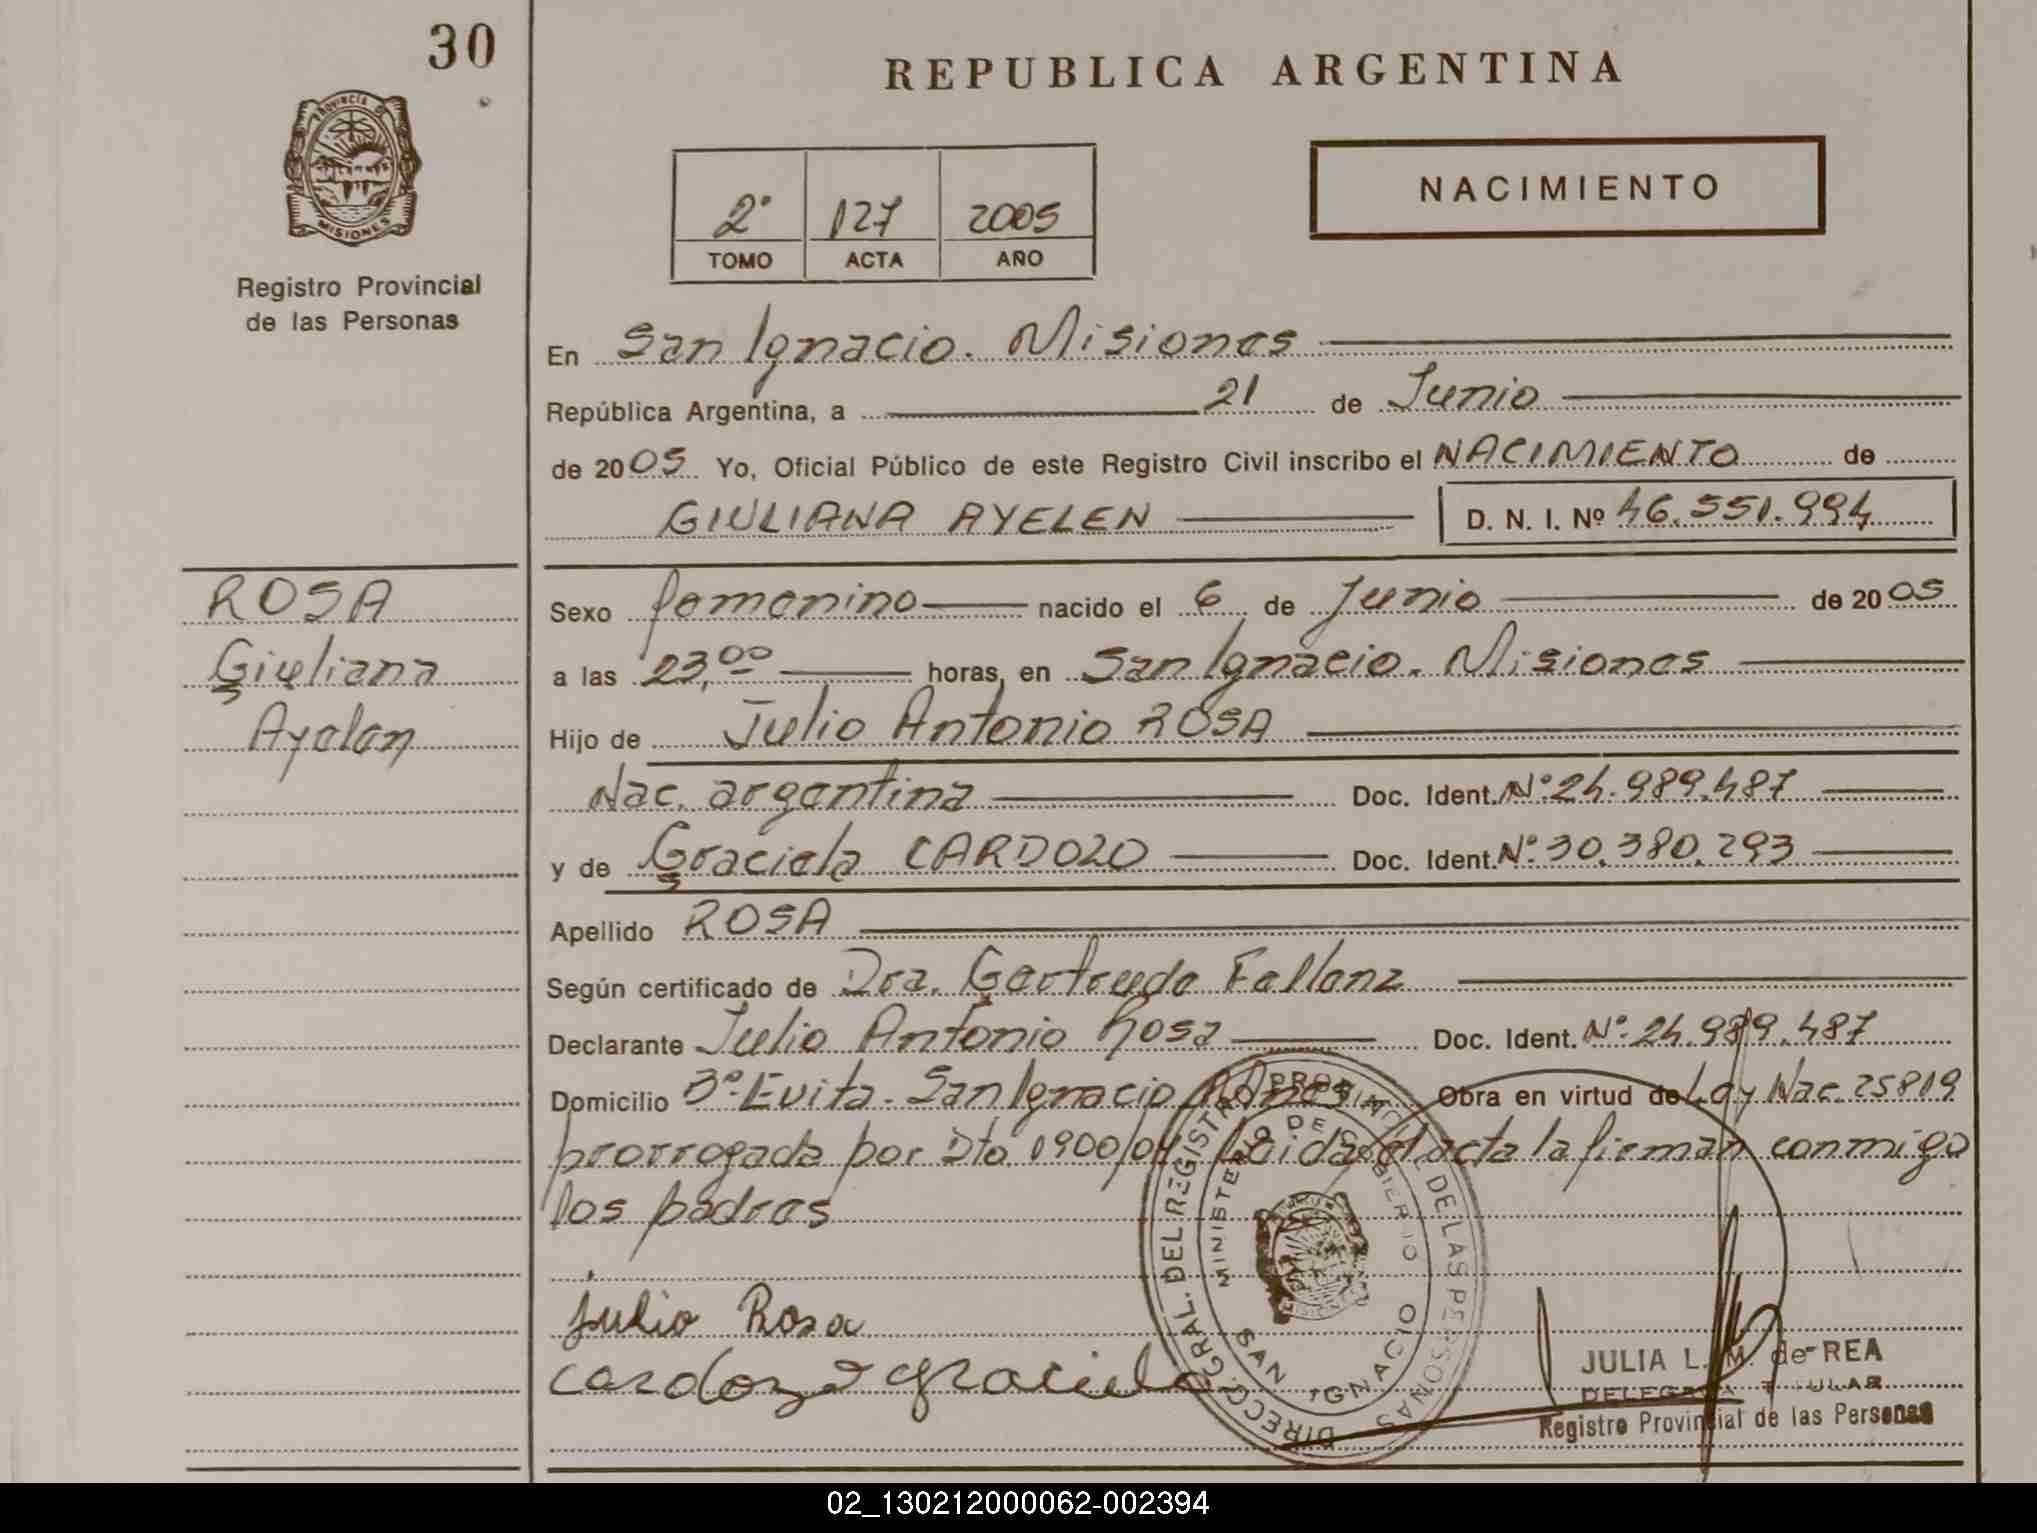 30
REPUBLICA ARGENTINA
PROVINCIA DE
MISIONES
Registro Provincial
de las Personas
NACIMIENTO
2° 127 2005
TOMO ACTA AÑO
En San Ignacio. Misiones
República Argentina, a 21 de Junio
de 2005 Yo, Oficial Público de este Registro Civil inscribo el NACIMIENTO de
GIULIANA AYELEN D. N. I. Nº 46.551.994
ROSA
Giuliana
Ayelen
Sexo femenino nacido el 6 de Junio de 2005
a las 23,00 horas, en San Ignacio. Misiones
Hijo de Julio Antonio ROSA
Nac. argentina Doc. Ident. Nº 24.989.487
y de Graciela CARDOZO Doc. Ident. Nº 30.380.293
Apellido ROSA
Según certificado de Dra. Gertrude Fallenz
Declarante Julio Antonio Rosa Doc. Ident. Nº 24.989.487
Domicilio Bº Evita. San Ignacio Mnes Obra en virtud de Ley Nac. 25819
prorrogada por Dto. 1900/04 leida el acta la firman conmigo
los padres
Julio Rosa
Cardozo Graciela
DIRECC. GRAL. DEL REGISTRO PROVINCIAL DE LAS PERSONAS
MINISTERIO DE GOBIERNO
SAN IGNACIO
JULIA L. M. de REA
DELEGADA TITULAR
Registro Provincial de las Personas
02_130212000062-002394